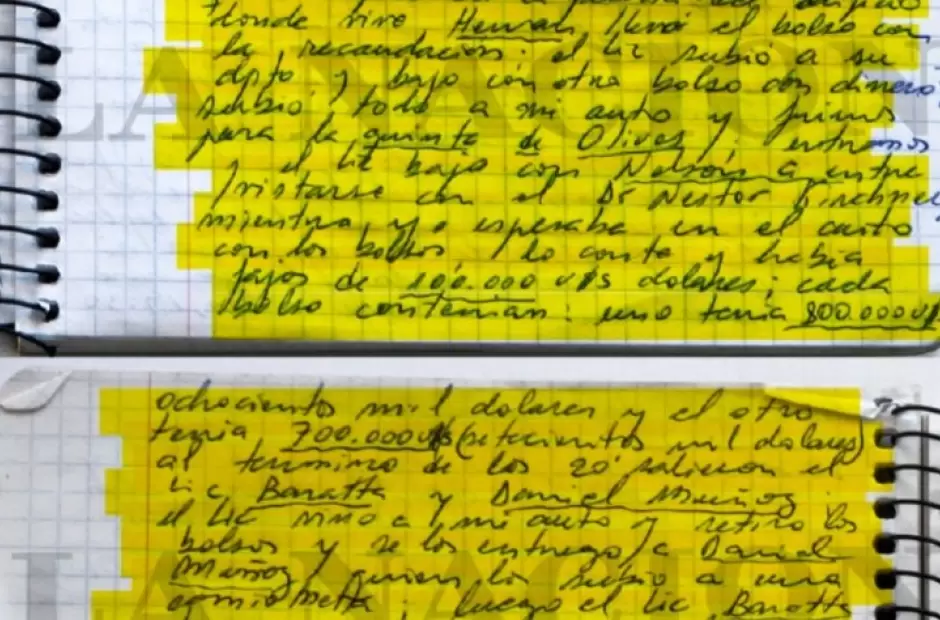 donde vive Hernan, llevó el bolso con
la recaudación; el lic subió a su
dpto y bajo con otro bolso con dinero,
subio todo a mi auto y fuimos
para la quinta de Olivos; entramos
y el lic bajo con Nelson a entre
vistarse con el Dr Nestor Kirchner
mientras yo esperaba en el auto
con los bolsos, lo conte y habia
fajos de 100.000 U$s dolares; cada
bolso contenian: uno tenia 800.000 U$
ochocientos mil dolares y el otro
tenia 700.000 U$s (setecientos mil dolares)
al termino de los 20' salieron el
Lic Baratta y Daniel Muñoz.
el Lic vino a mi auto y retiro los
bolsos y se los entrego a Daniel
Muñoz quien los subio a una
camioneta; luego el Lic Baratta
LA NACION
LA NACION